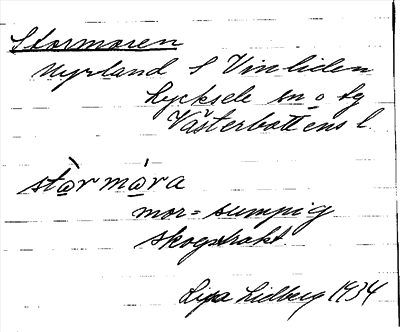 Stormoren
Nyrland S Vinliden
Lycksele sn o lg
Västerbottens l.
stàr mára
mor = sumpig
skogstrakt
Lisa Lidberg 1934